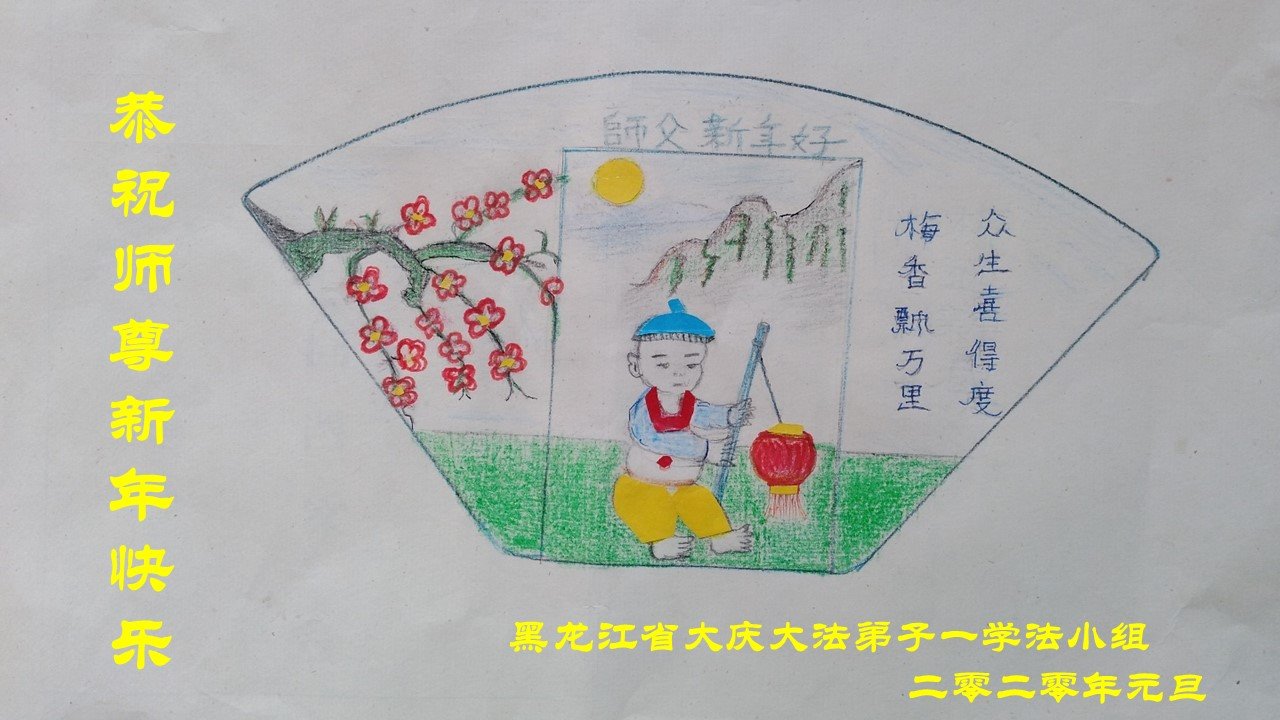 恭祝师尊新年快乐
師父新年好
众生喜得度
梅香飘万里
黑龙江省大庆大法弟子一学法小组
二零二零年元旦